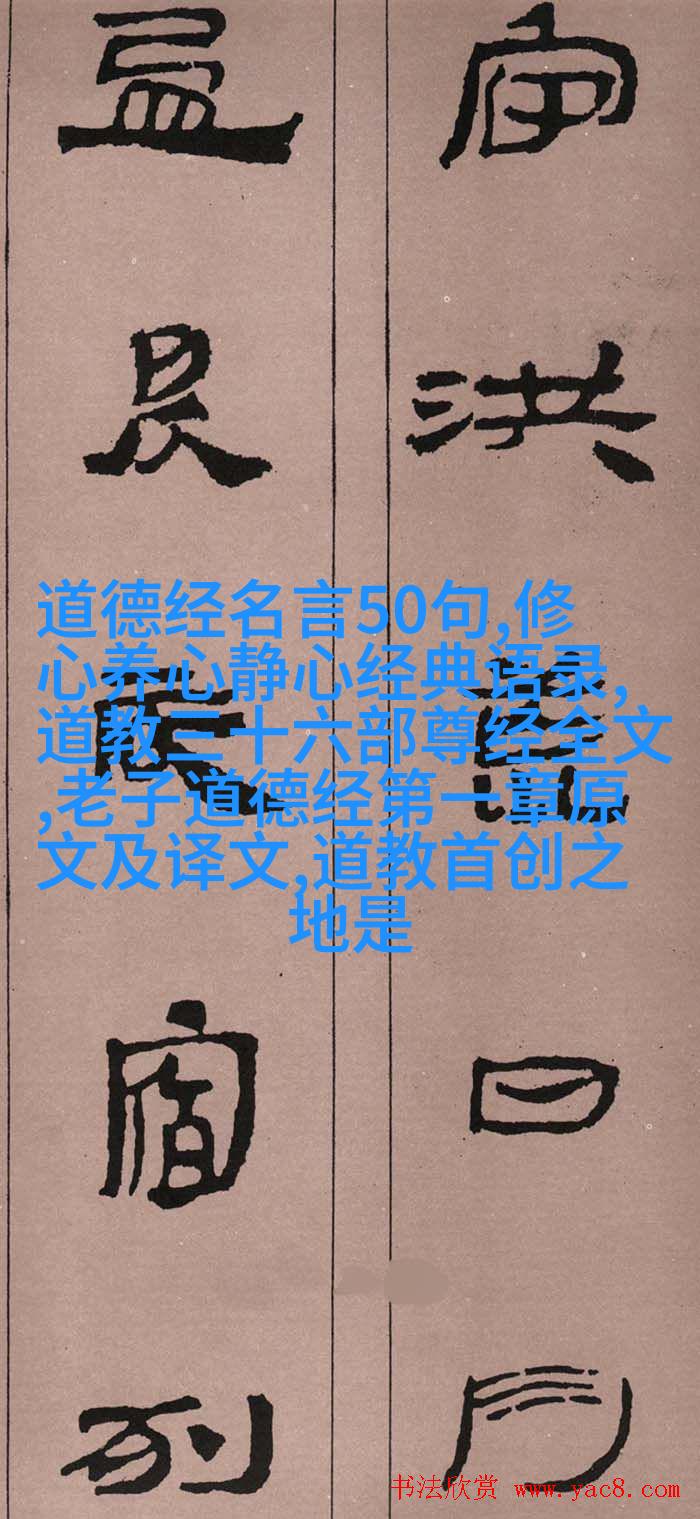 宙洪荒日月
盈昃辰宿列
道德经名言50句,修
心养心静心经典语录,
道教三十六部尊经全文
,老子道德经第一章原
文及译文,道教首创之
地是
书法欣赏 www.yac8.com